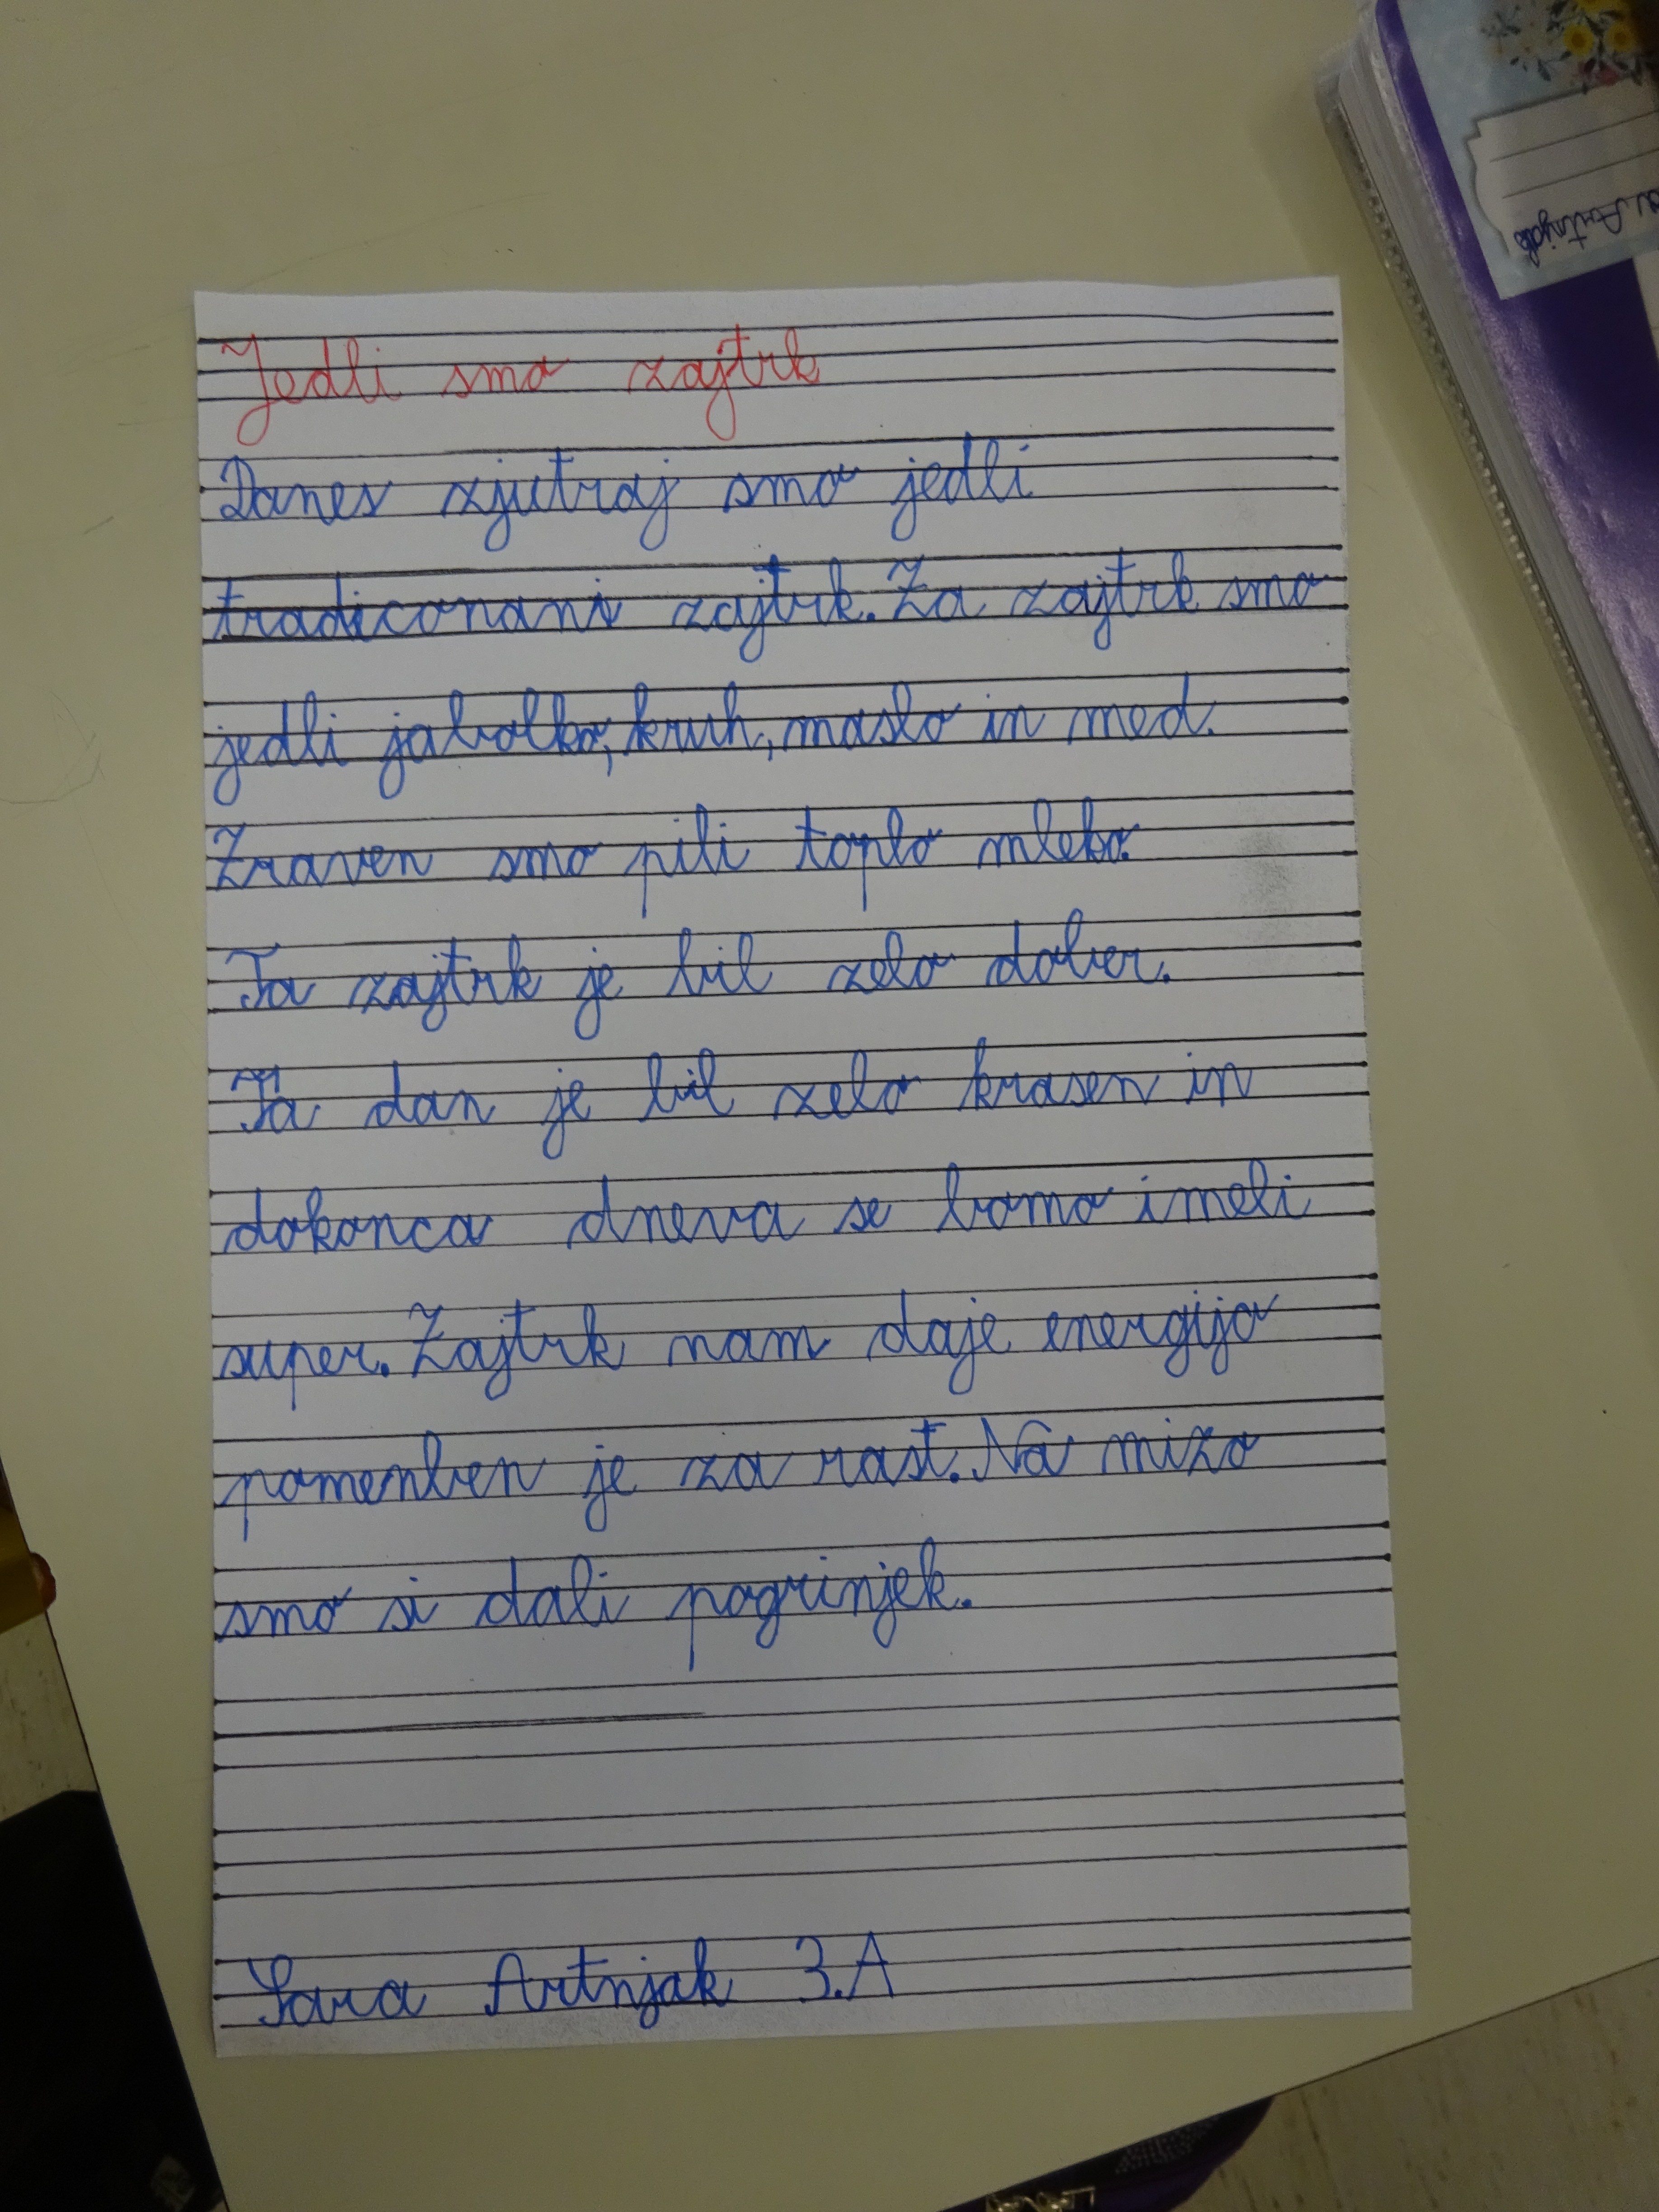 Jedli smo zajtrk
Danes zjutraj smo jedli
tradiconani zajtrk. Za zajtrk smo
jedli jabolko, kruh, maslo in med.
Zraven smo pili toplo mleko.
Ta zajtrk je bil zelo dober.
Ta dan je bil zelo krasen in
dokonca dneva se bomo imeli
super. Zajtrk nam daje energijo
pomemben je za rast. Na mizo
smo si dali pogrinjek.
Sara Artnjak 3.A
Artnjak